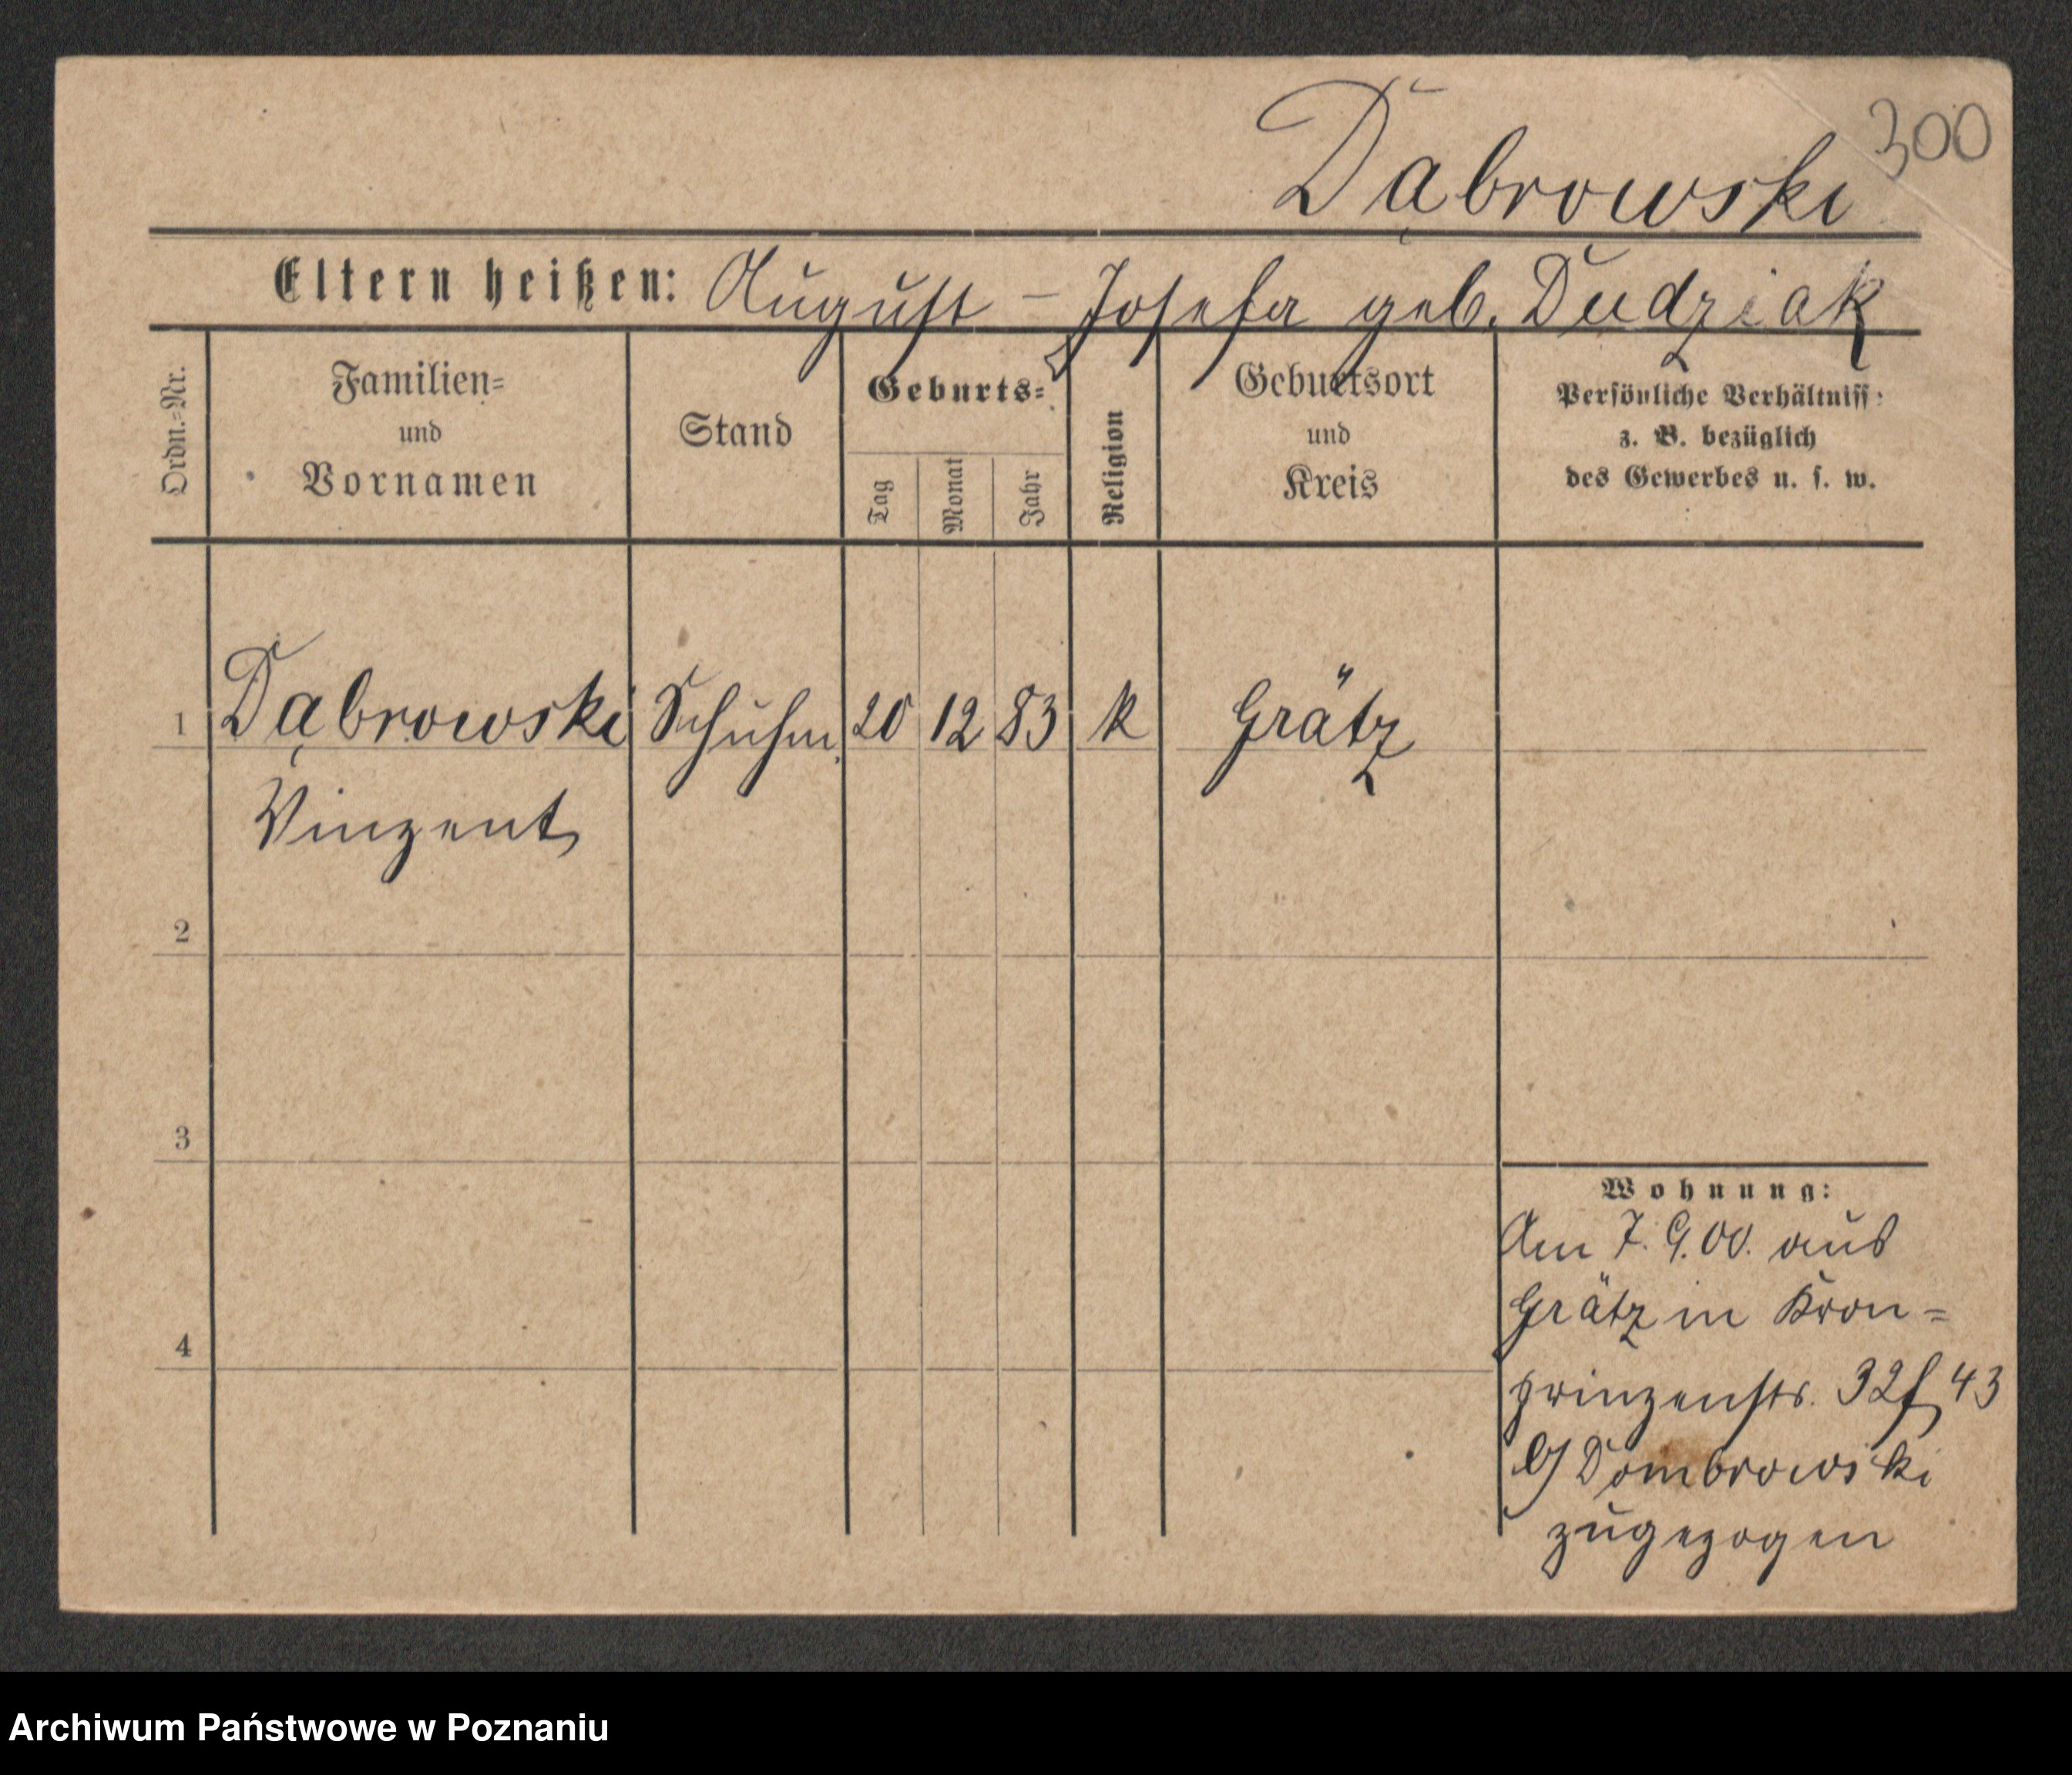 300
Dąbrowski
Eltern heißen: August – Josefa geb. Dudziak
Ordn.=Nr.
Familien=
und
Vornamen
Stand
Geburts=
Tag
Monat
Jahr
Religion
Geburtsort
und
Kreis
Persönliche Verhältniss:
z. B. bezüglich
des Gewerbes u. s. w.
1 Dąbrowski Schuhm. 20 12 83 k Grätz
Vinzent
2
3
4
Wohnung:
Am 7. 9. 00. aus
Grätz in Kron=
prinzenstr. 32f 43
b/ Dombrowski
zugezogen
Archiwum Państwowe w Poznaniu